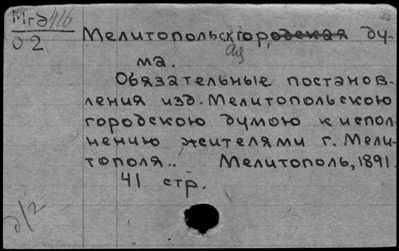 Мгд 416
02
Мелитопольская городская ду-
ма.
Обязательные постанов-
ления изд. Мелитопольскою
городскою думою к испол-
нению жителями г. Мели-
тополя.. Мелитополь, 1891.
41 стр.
д/2